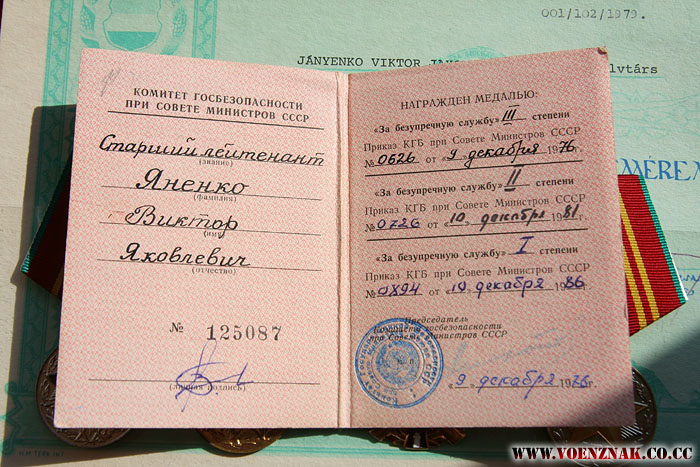 001/102/1979.
JÁNYENKO VIKTOR
lvtárs
КОМИТЕТ ГОСБЕЗОПАСНОСТИ
ПРИ СОВЕТЕ МИНИСТРОВ СССР
Старший лейтенант
(звание)
Яненко
(фамилия)
Виктор
(имя)
Яковлевич
(отчество)
№ 125087
(личная подпись)
НАГРАЖДЕН МЕДАЛЬЮ:
«За безупречную службу» III степени
Приказ КГБ при Совете Министров СССР
№ 0626 от «9» декабря 1976г.
«За безупречную службу» II степени
Приказ КГБ при Совете Министров СССР
№ 0726 от «10» декабря 1981г.
«За безупречную службу» I степени
Приказ КГБ при Совете Министров СССР
№ 0894 от «19» декабря 1986г.
Председатель
Комитета госбезопасности
при Совете Министров СССР
«9» декабря 1976г.
WWW.VOENZNAK.CO.CC